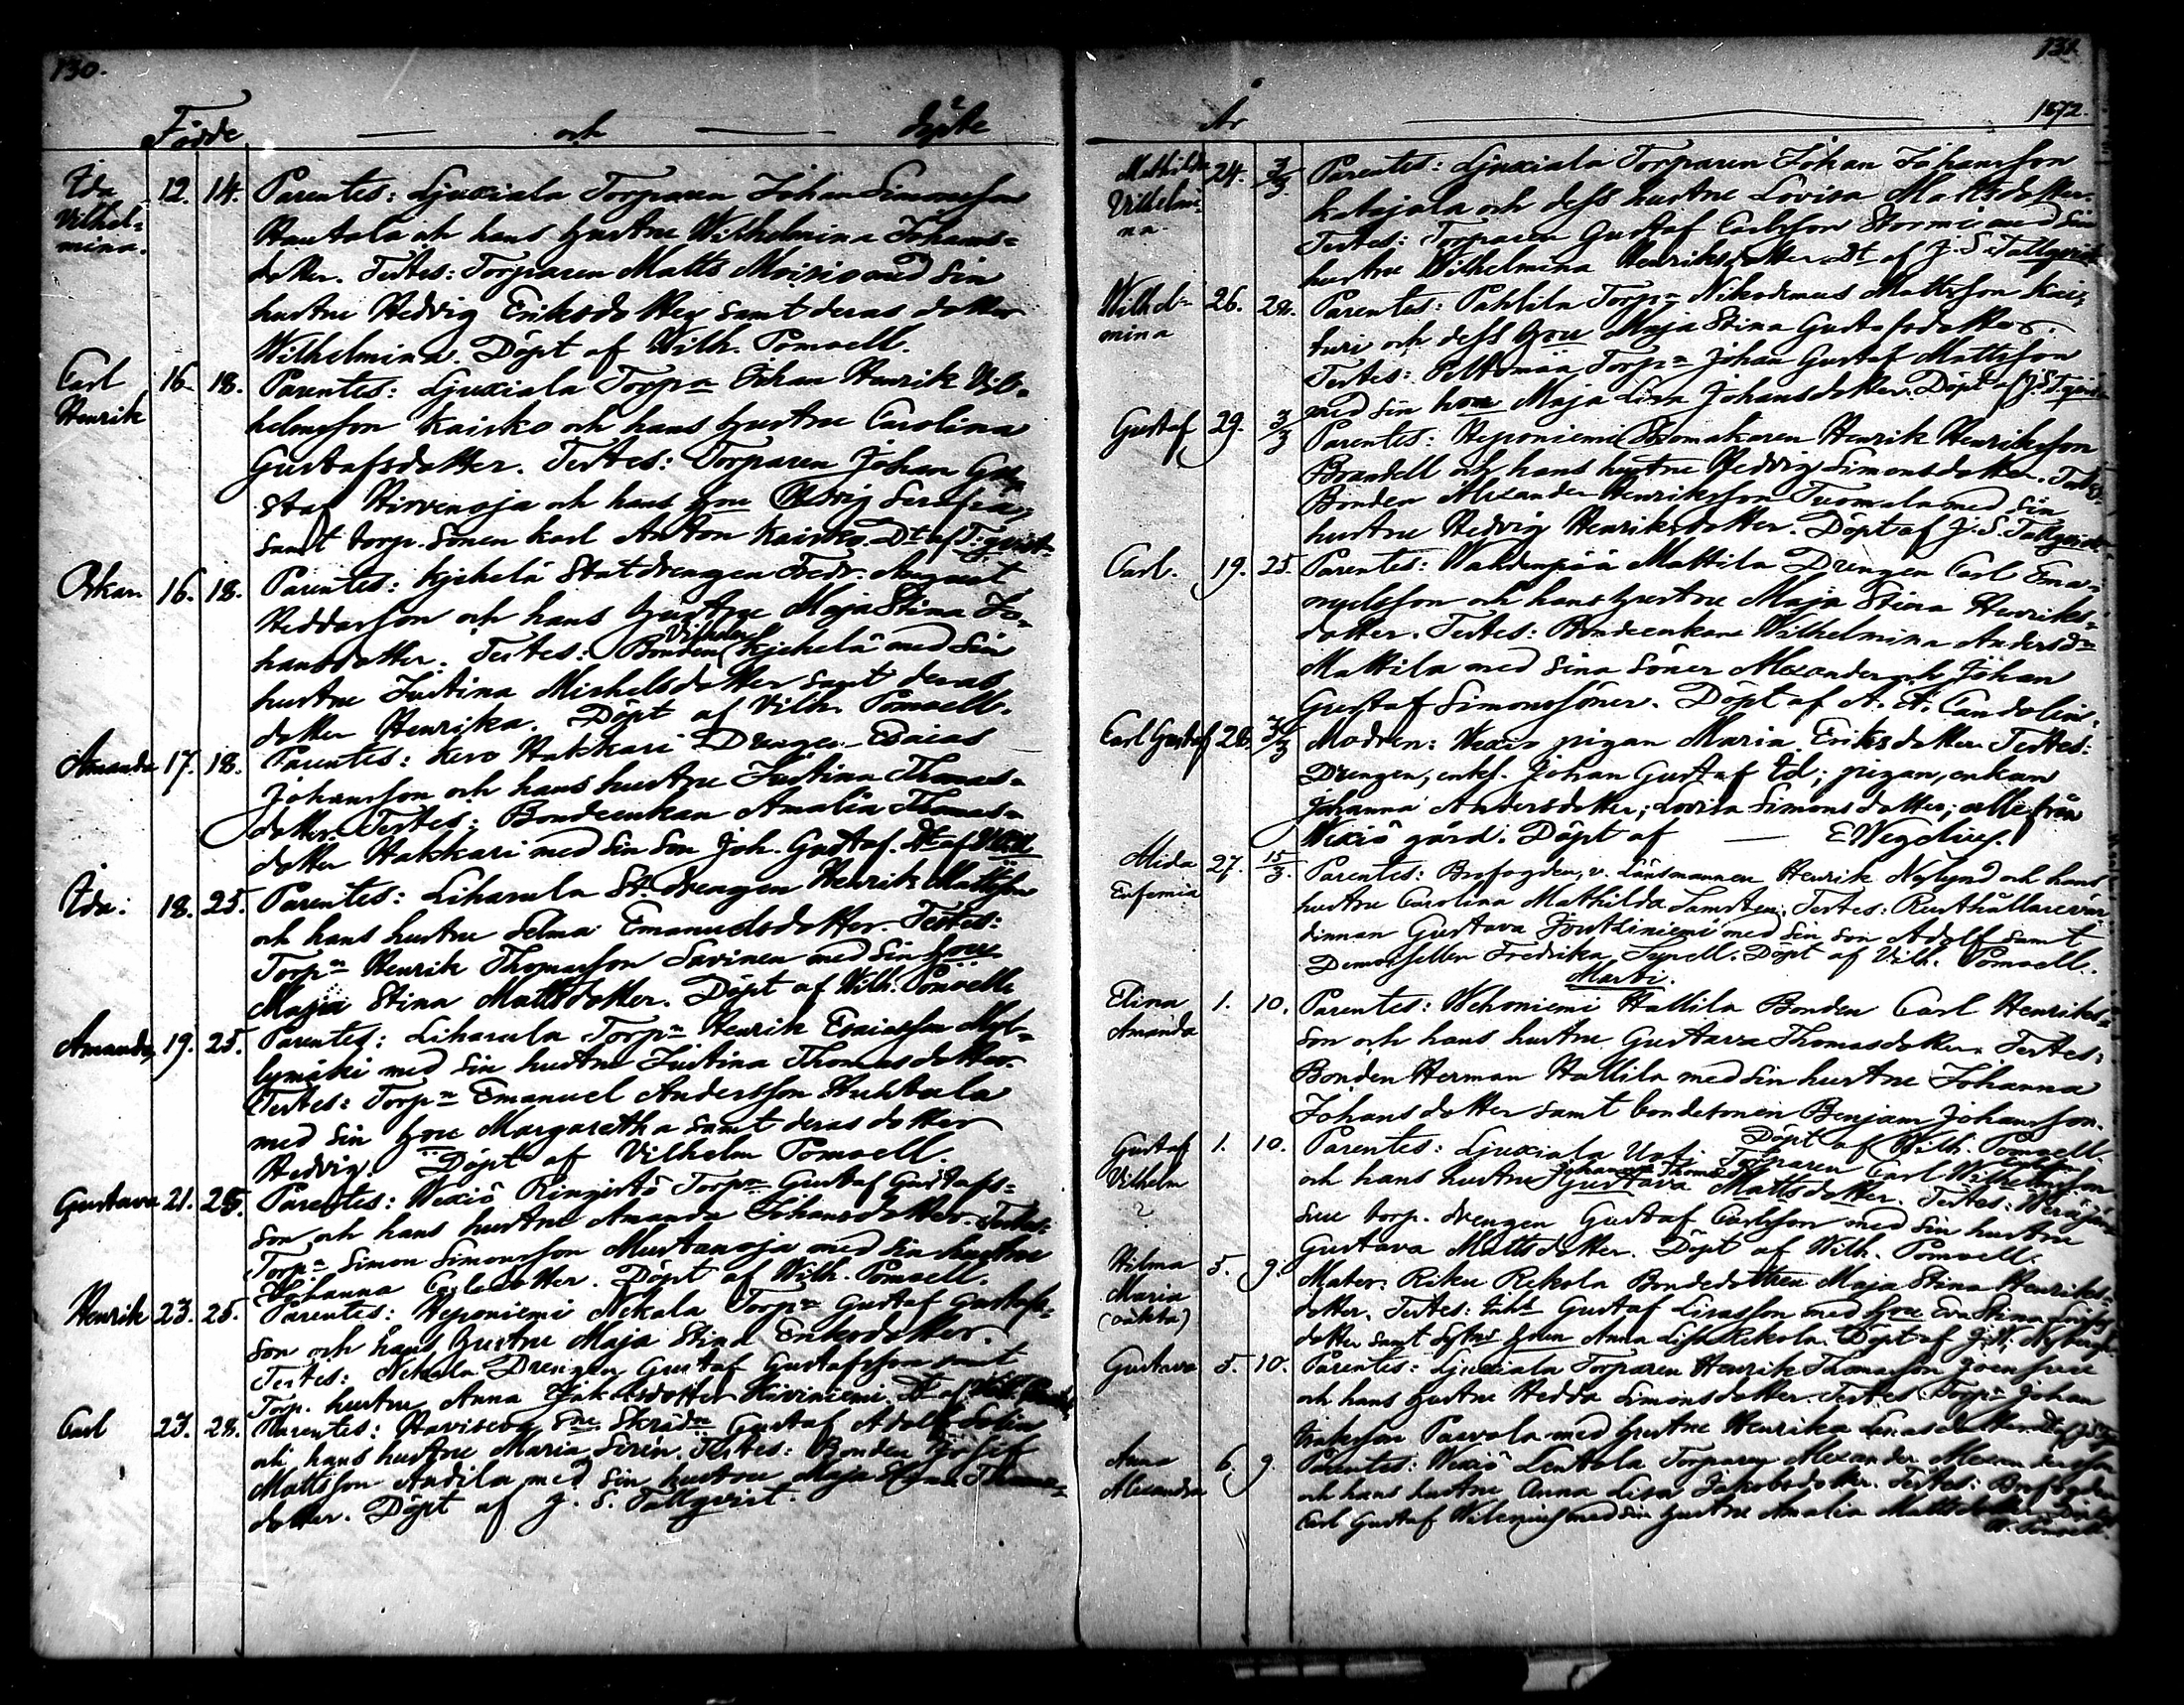 130.
Födde — och — döpte
Ida Vilhel= mina. 12. 14. Parentes: Ljuxiala Torparen Johan Simonsson
Hautala och hans hustru Wilhelmina Johans=
dotter. Testes: Torparen Matts Moisio med sin
hustru Hedvig Eriksdotter samt deras dotter
Wilhelmina. Döpt af Wilh. Pomoell.
Carl Henrik 16. 18. Parentes: Ljuxiala Torpn Johan Henrik Vil=
helmsson Kaisko och hans hustru Carolina
Gustafsdotter. Testes: Torparen Johan Gu
staf Hirvenoja och hans hru Hedvig Serafia,
samt torp. Sonen Karl Anton Kaisko. Dt af T:gvist.
Oskar 16. 18. Parentes: Kjehelä Statdrengen Fredr. August
Heddasson och hans hustru Maja Stina Jo=
hansdotter. Testes: Bonden Vilhelm Kjehelä med sin
hustru Justina Michelsdotter samt deras
dotter Henrika. Döpt af Vilh. Pomoell.
Amanda 17. 18. Parentes: Kero Hakkari Drengen Esaias
Johansson och hans hustru Justina Thomas=
dotter. Testes: Bondeenkan Amalia Thomas=
dotter Hakkari med sin son Joh. Gustaf. Dt af
Ida. 18. 25. Parentes: Liharula St. drengen Henrik Mattsson
och hans hustru Selma Emanuelsdotter. Testes:
Torpn Henrik Thomasson Savinen med sin hru
Maja Stina Mattsdotter. Döpt af Wilh. Pomoell
Amanda 19. 25. Parentes: Liharula Torpn Henrik Esaiasson Myl=
lymäki med sin hustru Justina Thomasdotter.
Testes: Torpn Emanuel Andersson Huhtala
med sin hru Margaretha samt deras dotter
Hedvig. Döpt af Vilhelm Pomoell.
Gustava 21. 25. Parentes: Wexiö Ringistö Torpn Gustaf Gustafs=
son och hans hustru Amanda Johansdotter. Testes:
Torpn Simon Simonsson Mustanoja med sin hustru
Johanna Carlsdotter. Döpt af Wilh. Pomoell.
Henrik 23. 25. Parentes: Heponiemi Nekala Torpn Gustaf Gustafs=
son och hans hustru Maja Stina Eriksdotter.
Testes: Nekala Drengen Gustaf Gustafsson samt
Torp. hustrun Anna Jakobsdotter Kiviniemi. Dt af Wilh.
Carl 23. 28. Parentes: Haviseva Skrädn Gustaf Adolf Solin
och hans hustru Maria Seren. Testes: Bonden Josef
Mattsson Andila med sin hustru Maja Stina Thomas=
dotter. Döpt af J. S. Tallgvist.
131.
År — 1872.
Mathilda Vilhelmi= na. 24. 3/3. Parentes: Ljuxiala Torparen Johan Johansson
Katajala och dess hustru Lovisa Mattsdotter.
Testes: Torparen Gustaf Carlsson Stormi med sin
hustru Wilhelmina Henriksdotter. Dt af J. S. Tallgvist
Wilhel= mina 26. 28. Parentes: Pahlila Torpn Nikodemus Mattsson Kai=
turi och dess hru Maja Stina Gustafsdotter.
Testes: Peltomaa Torpn Johan Gustaf Mattsson
med sin hru Maja Lisa Johansdotter. Döpt af J. S. T.gvist
Gustaf 29. 3/3 Parentes: Heponiemi Skomakaren Henrik Henriksson
Brandell och hans hustru Hedvig Simonsdotter. Testes:
Bonden Alexander Henriksson Tuomala med sin
hustru Hedvig Henriksdotter. Döpt af J. S. Tallgvist.
Carl. 19. 25. Parentes: Wahdenpää Mattila Drengen Carl Ema=
nuelsson och hans hustru Maja Stina Henriks=
dotter. Testes: Bondeenkan Wilhelmina Andersdr
Mattila med sina söner Alexander och Johan
Gustaf Simonssöner. Döpt af A. A. Candolin.
Carl Gustaf 26. 3/3 Modren: Wexiö pigan Maria Eriksdotter. Testes:
Drengen, enkl. Johan Gustaf Ed; pigan, enkan
Johanna Andersdotter; Lovisa Simonsdotter; alle från
Wexiö gård. Döpt af — E Wegelius.
Alida Eufemia 27. 15/3. Parentes: Brofogden, v. Länsmannen Henrik Nylund och hans
hustru Carolina Mathilda Samsten. Testes: Rusthållarevär
dinnan Gustava Jontiniemi med sin son Adolf samt
Demoisellen Fredrika Syrell. Döpt af Vilh. Pomoell.
Martii.
Elina Amanda 1. 10. Parentes: Wehoniemi Hallila Bonden Carl Henriks=
son och hans hustru Gustava Thomasdotter. Testes:
Bonden Herman Hallila med sin hustru Johanna
Johansdotter samt bondesonen Benjam Johansson.
Döpt af Wilh. Pomoell.
Gustaf Vilhelm ? 1. 10. Parentes: Ljuxiala Torparen Carl Wilhelmsson
och hans hustru Johanna Thomas Gustava Mattsdotter. Testes:
torp. drengen Gustaf Carlsson med sin hustru
Gustava Mattsdotter. Döpt af Wilh. Pomoell.
Hilma Maria (oäkta) 5. 9. Mater: Riku Rekola Bondedottren Maja Stina Henriks=
dotter. Testes: Gustaf Lisasson med hru Eva Stina
dotter samt hrun Anna Lisa Rekola. Döpt af
Gustava 5. 10. Parentes: Ljuxiala Torparen Henrik Thomasson Joensuu
och hans hustru Hedda Simonsdotter. Testes: Torpn Johan
Isaksson Paavola med hustru Henrika
Anna Alexandra 6. 9. Parentes: Wexiö Lentola Torparen Alexander Alexandersson
och hans hustru Anna Lisa Jakobsdotter. Testes: Brofogden
Carl Gustaf Wilenius med sin hustru Amalia Mattsdotter.
W. Pomoell.